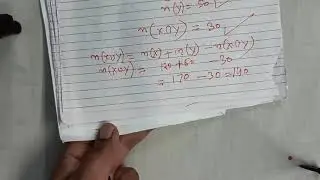 n(y) = 50
n(x∩y) = 30
n(x∪y) = n(x) + n(y) - n(x∩y)
n(x∪y) = 120 + 50 - 30
= 170 - 30 = 140